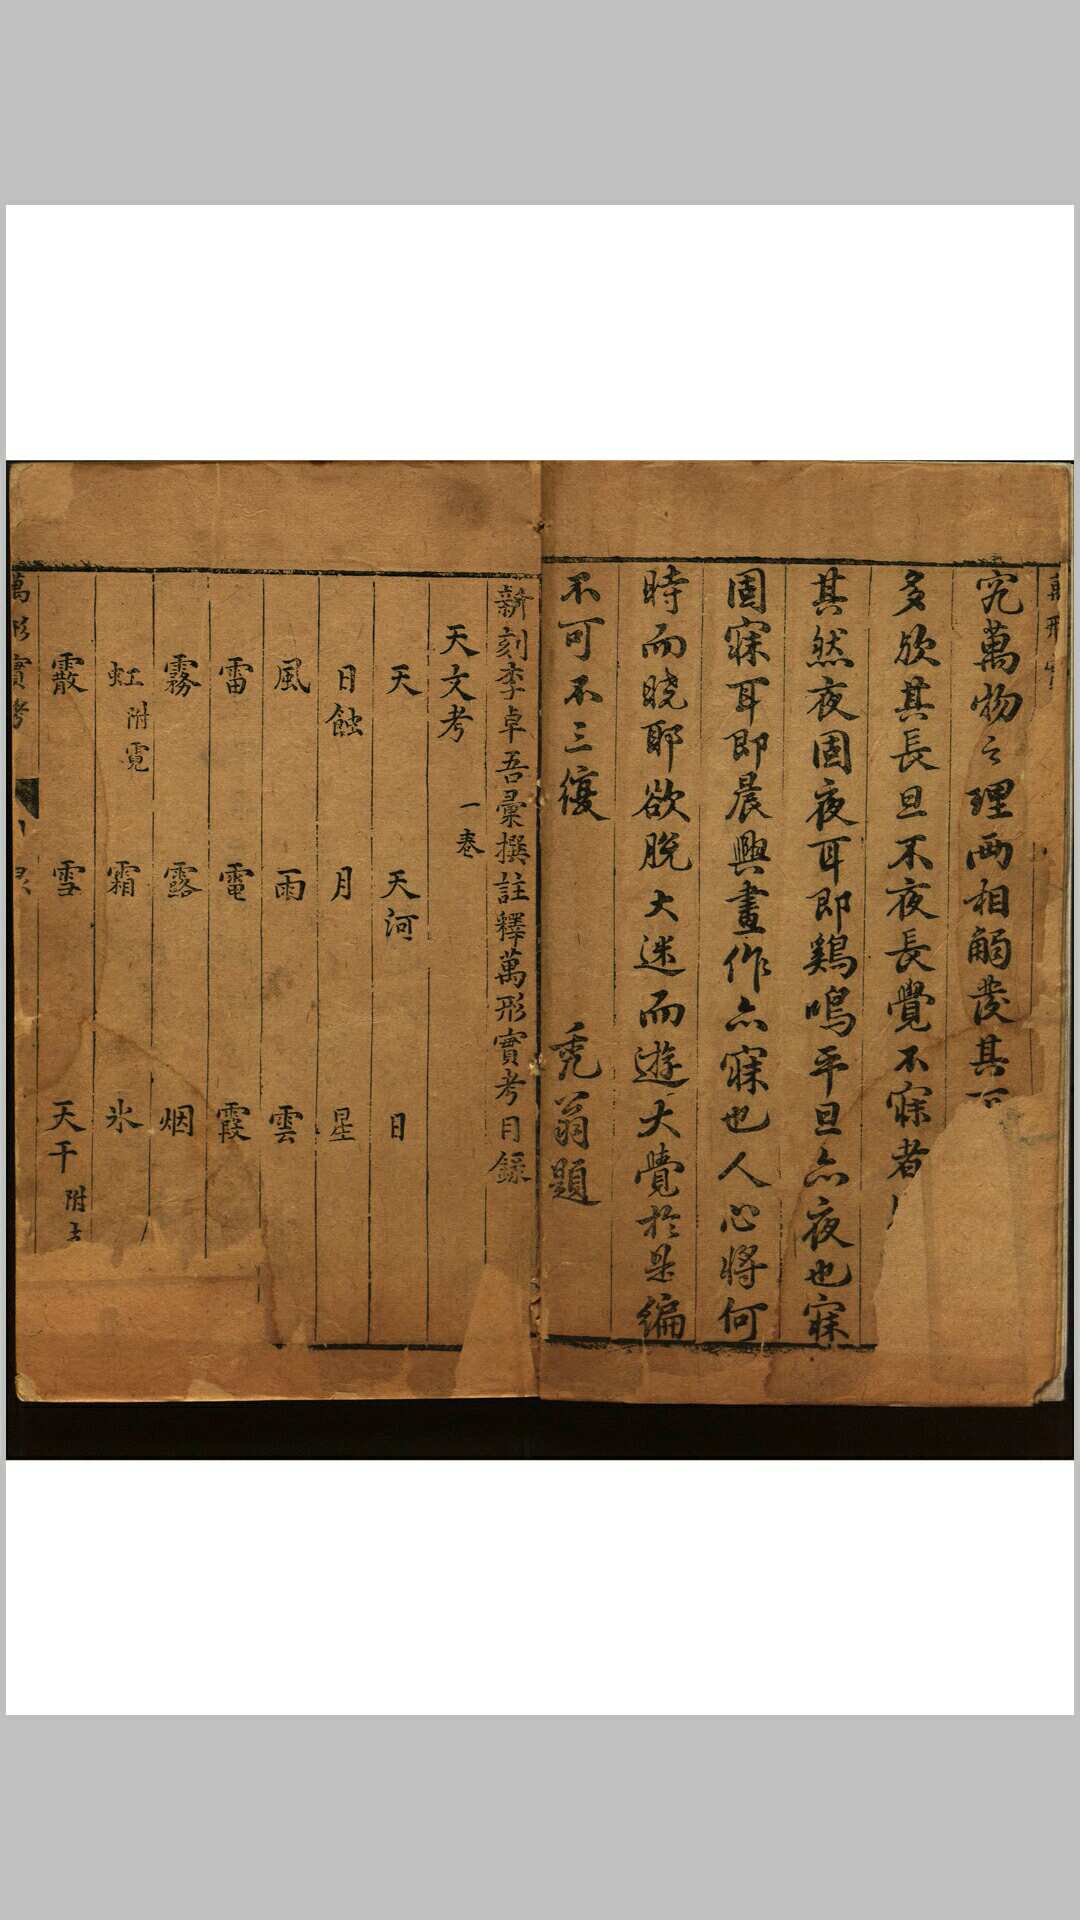 究萬物之理兩相觸發其
多欣其長旦不夜長覺不寐者
其然夜固夜耳即鷄鳴平旦亦夜也寐
固寐耳即晨興晝作亦寐也人心將何
時而曉耶欲脫大迷而遊大覺於是編
不可不三復
禿翁題
新刻李卓吾彙撰註釋萬形實考目錄
天文考 一卷
天 天河 日
日蝕 月 星
風 雨 雲
雷 電 霞
霧 露 烟
虹 附霓 霜 氷
霰 雪 天干 附
萬形實考